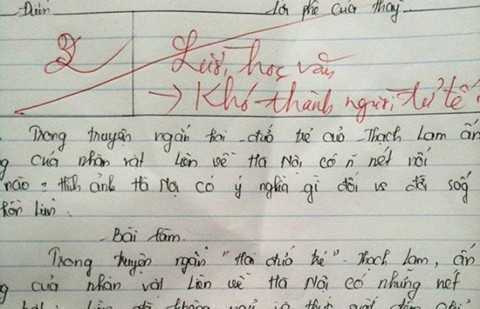 Điểm Lời phê của thầy
2 Lười học văn
→ Khó thành người tử tế
Trong truyện ngắn hai đứa trẻ của Thạch Lam ấn
g của nhân vật Liên về Hà Nội có n nét nổi
nào? Hình ảnh Hà Nội có ý nghĩa gì đối vs đời sog
Liên.
Bài làm
Trong truyện ngắn "Hai đứa trẻ" Thạch Lam, ấn
g của nhân vật Liên về Hà Nội có những nét